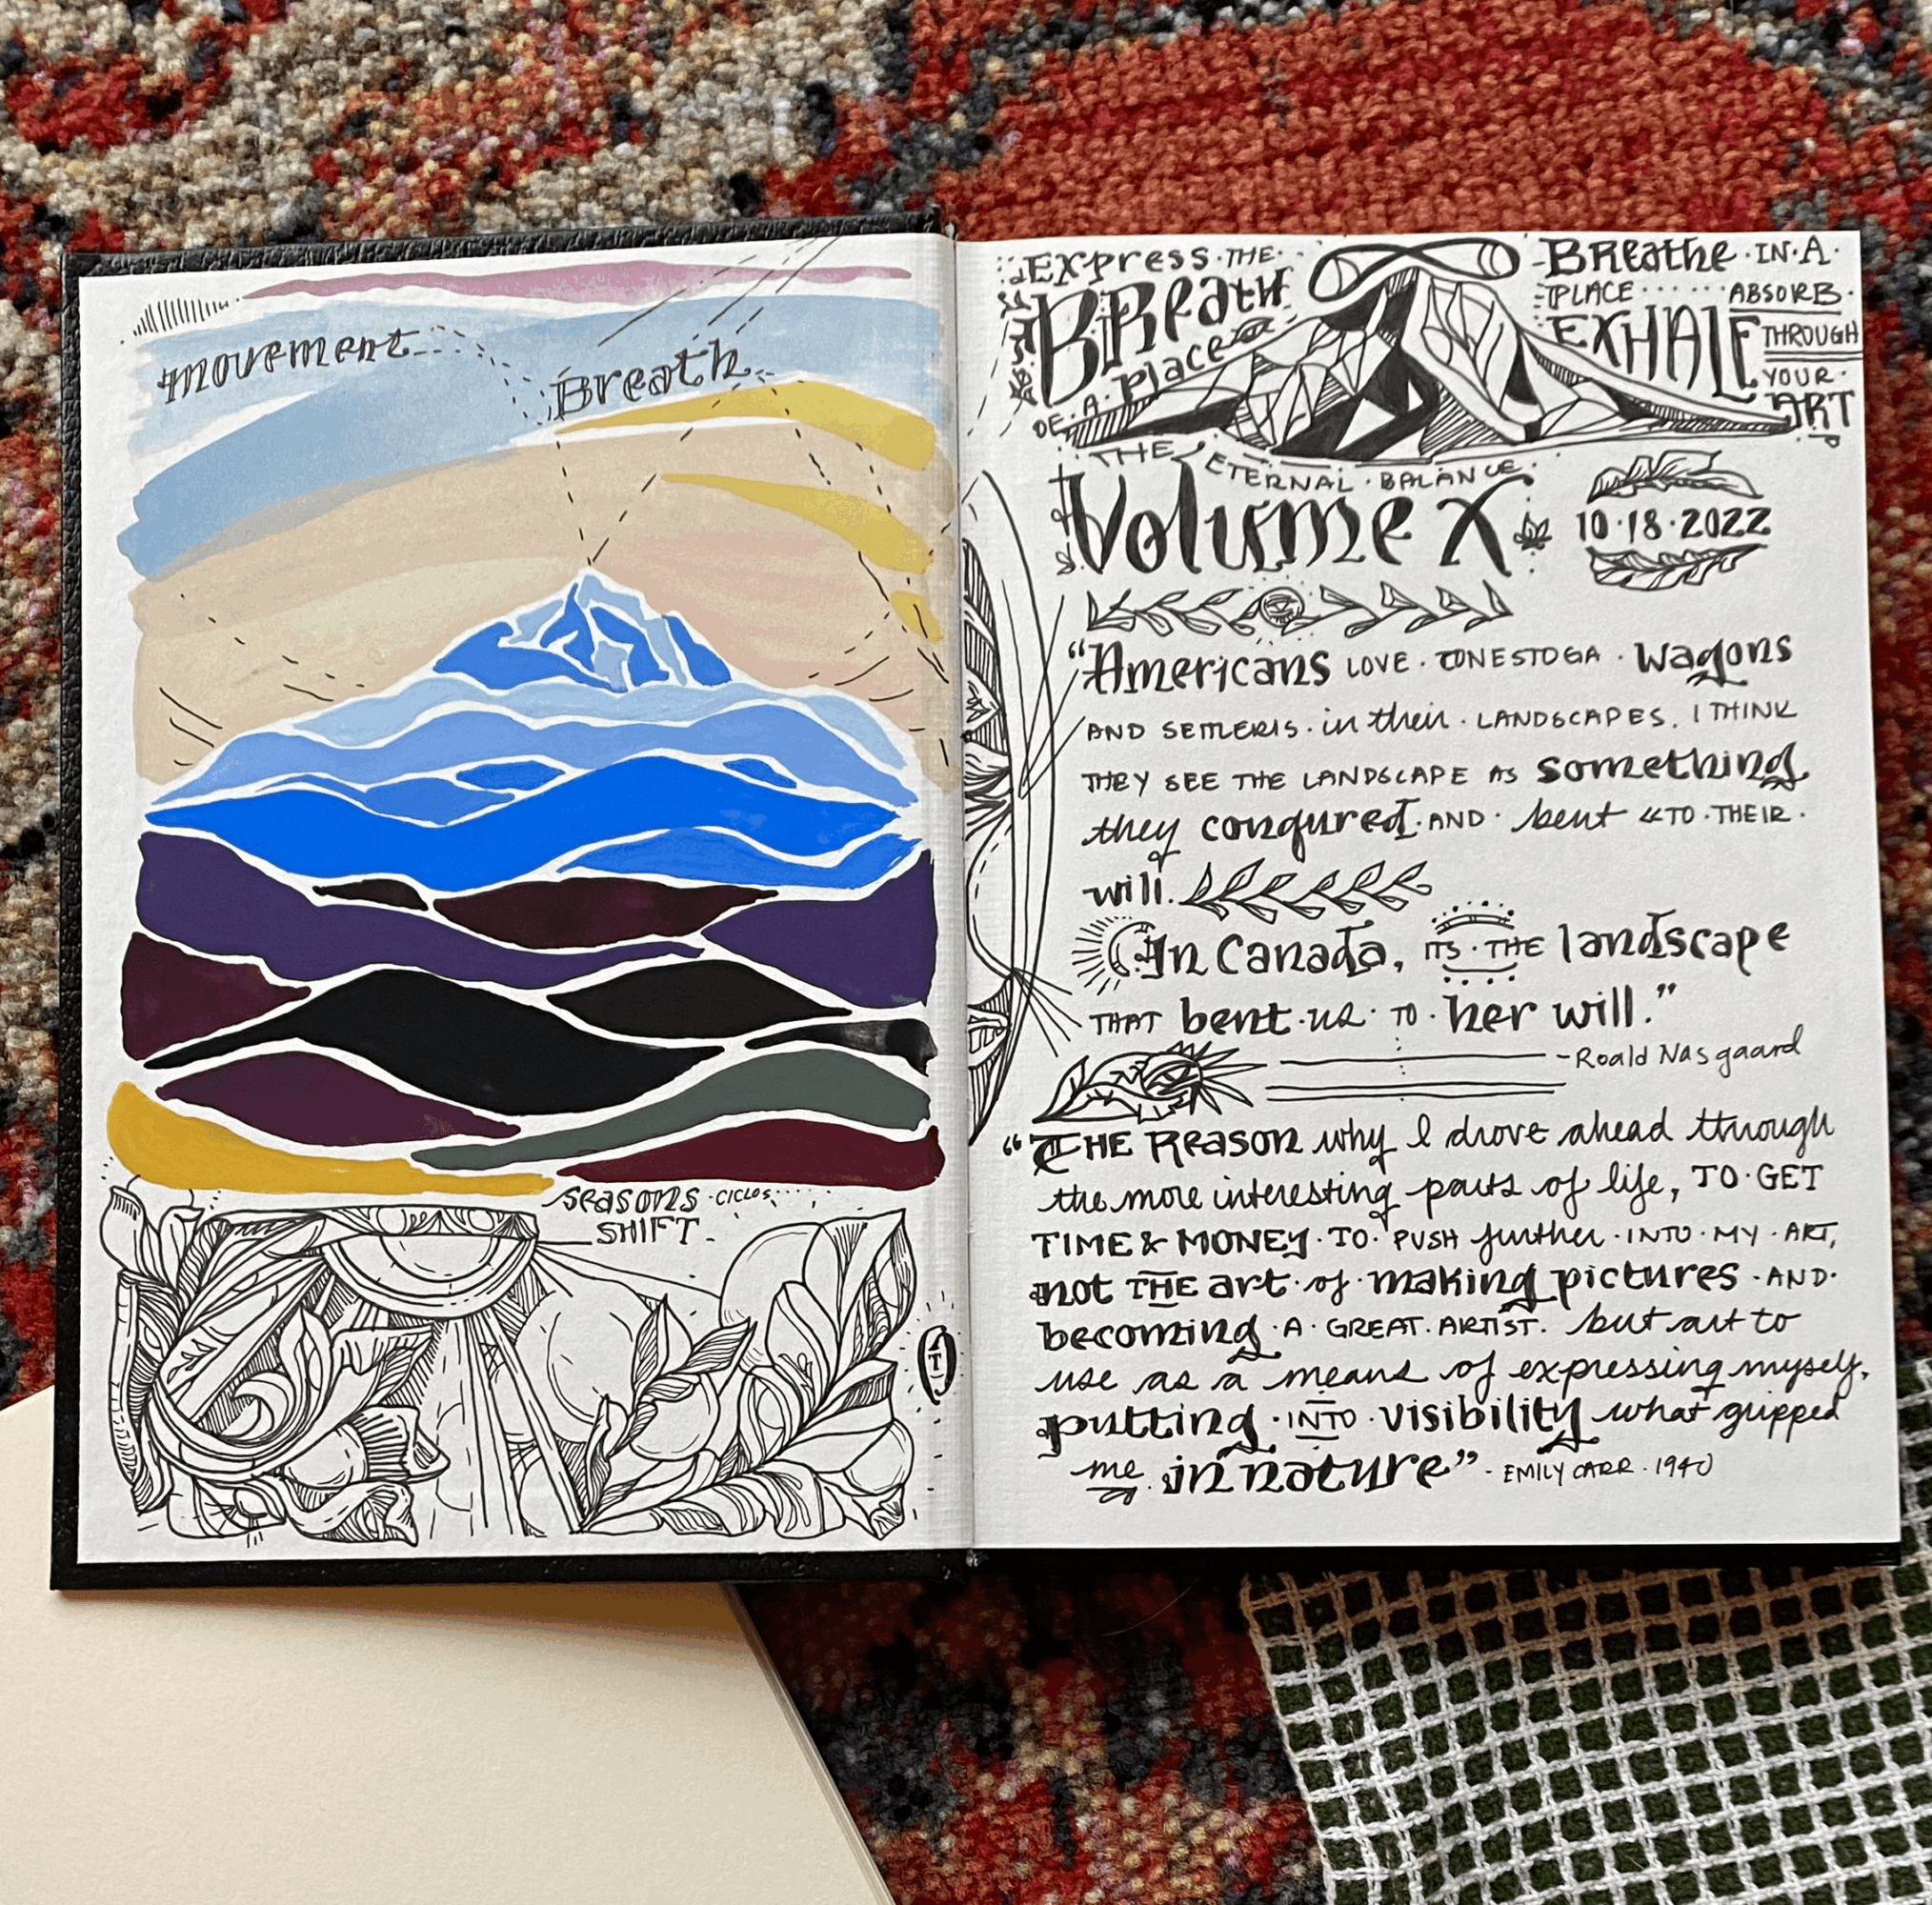 movement
Breath
seasons · ciclos
SHIFT
EXPRESS · THE
BREATH
OF · A · Place
Breathe · IN · A ·
PLACE · · · · · · ABSORB ·
EXHALE THROUGH
YOUR ·
ART
THE ETERNAL · BALANCE
Volume X
10 · 18 · 2022
"Americans LOVE · CONESTOGA · wagons
AND SETTLERS · in their · LANDSCAPES. I THINK
THEY SEE THE LANDSCAPE AS something
they conqured · AND · bent TO · THEIR ·
will.
In Canada, ITS · THE landscape
THAT bent · us · TO · her will."
- Roald Nasgaard
"THE Reason why I drove ahead through
the more interesting parts of life, TO · GET
TIME & MONEY · TO · PUSH further · INTO · MY · ART,
not THE art · of · making pictures · AND ·
becoming · A · GREAT · ARTIST. but art to
use as a means of expressing myself,
putting · INTO · visibility what gripped
me in nature" - EMILY CARR · 1940